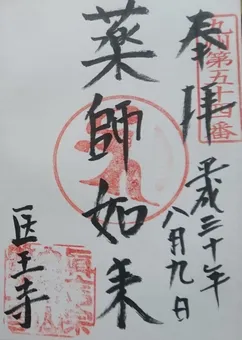 九州第五十四番
奉拝
平成三十年
八月九日
薬師如来
医王寺